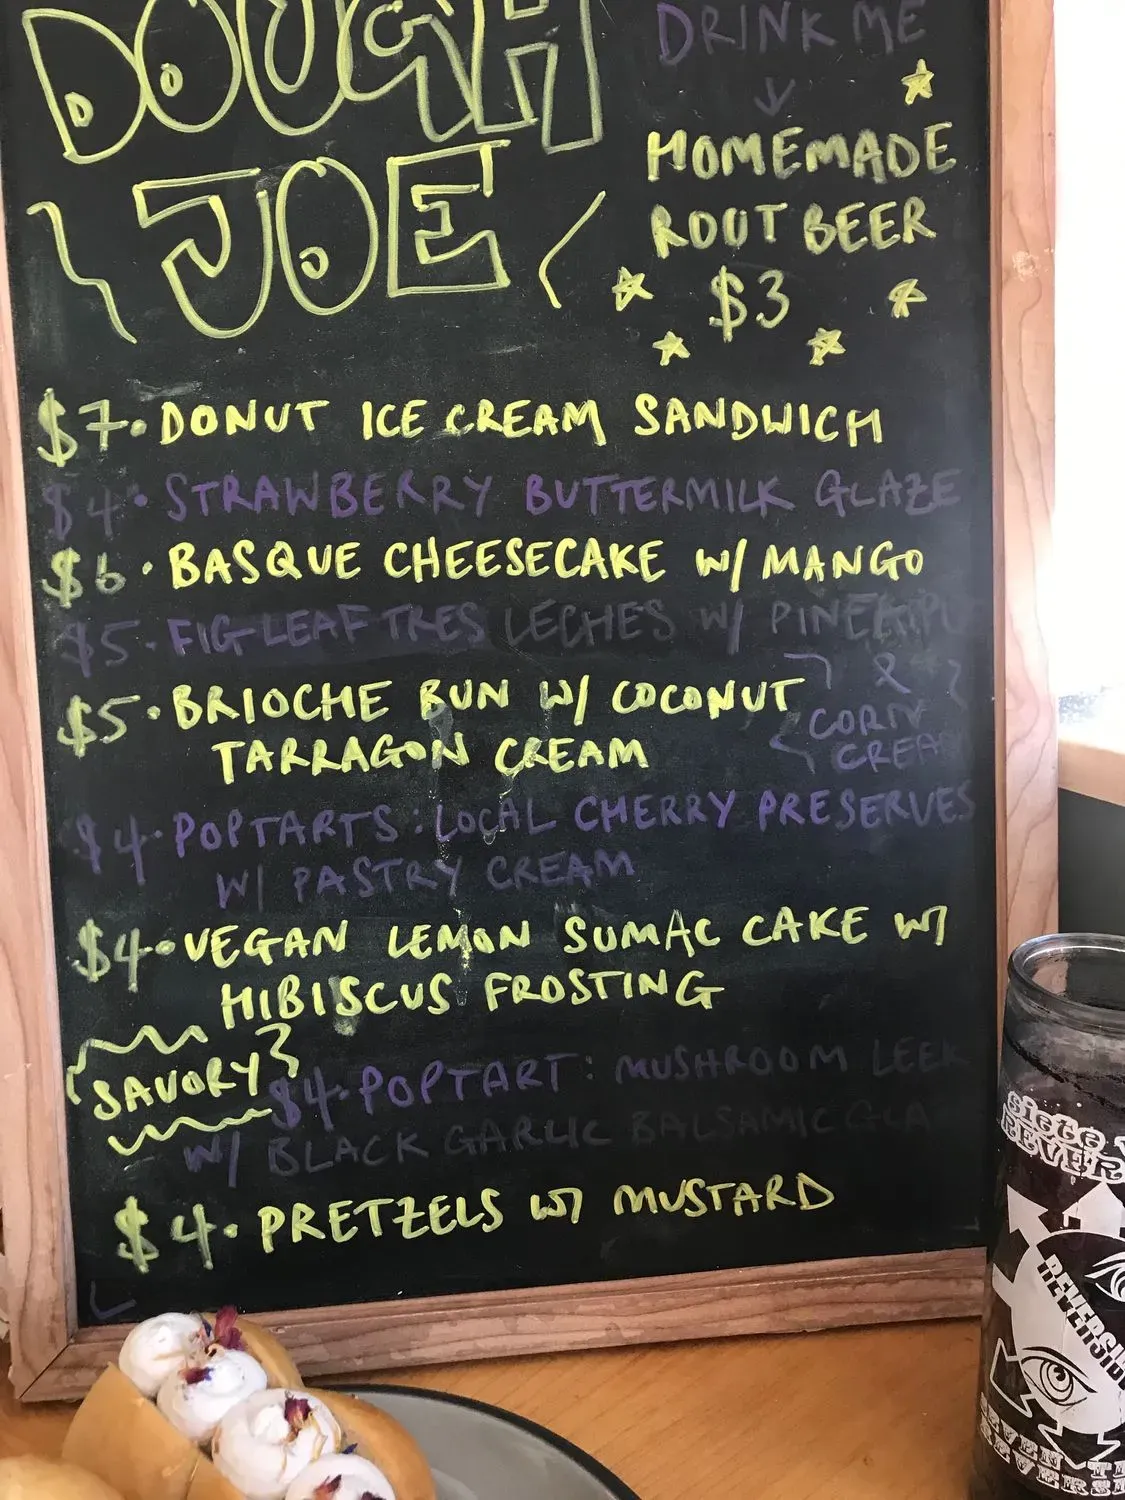 DOUGH
JOE
DRINK ME
HOMEMADE
ROOT BEER
$3
$7 · DONUT ICE CREAM SANDWICH
$4 · STRAWBERRY BUTTERMILK GLAZE
$6 · BASQUE CHEESECAKE W/ MANGO
$5 · FIG LEAF TRES LECHES W/
&
CORN
CREAM
$5 · BRIOCHE BUN W/ COCONUT
TARRAGON CREAM
$4 · POPTARTS : LOCAL CHERRY PRESERVES
W/ PASTRY CREAM
$4 · VEGAN LEMON SUMAC CAKE W/
HIBISCUS FROSTING
SAVORY
$4 · POPTART : MUSHROOM LEEK
W/ BLACK GARLIC BALSAMIC GLA
$4 · PRETZELS W/ MUSTARD
Siete
REVER
REVERSI
REVERSIBLE